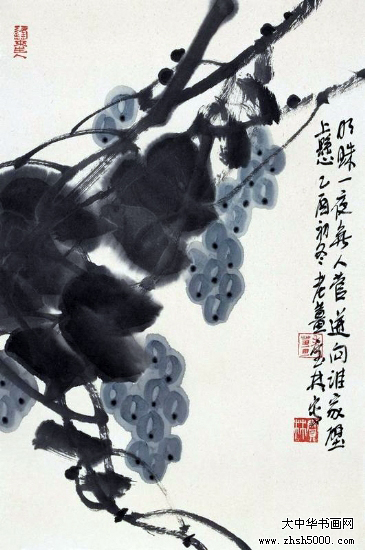 明珠一夜無人管迸向誰家壁
上懸乙酉初冬老
大中华书画网
www.zhsh5000.com